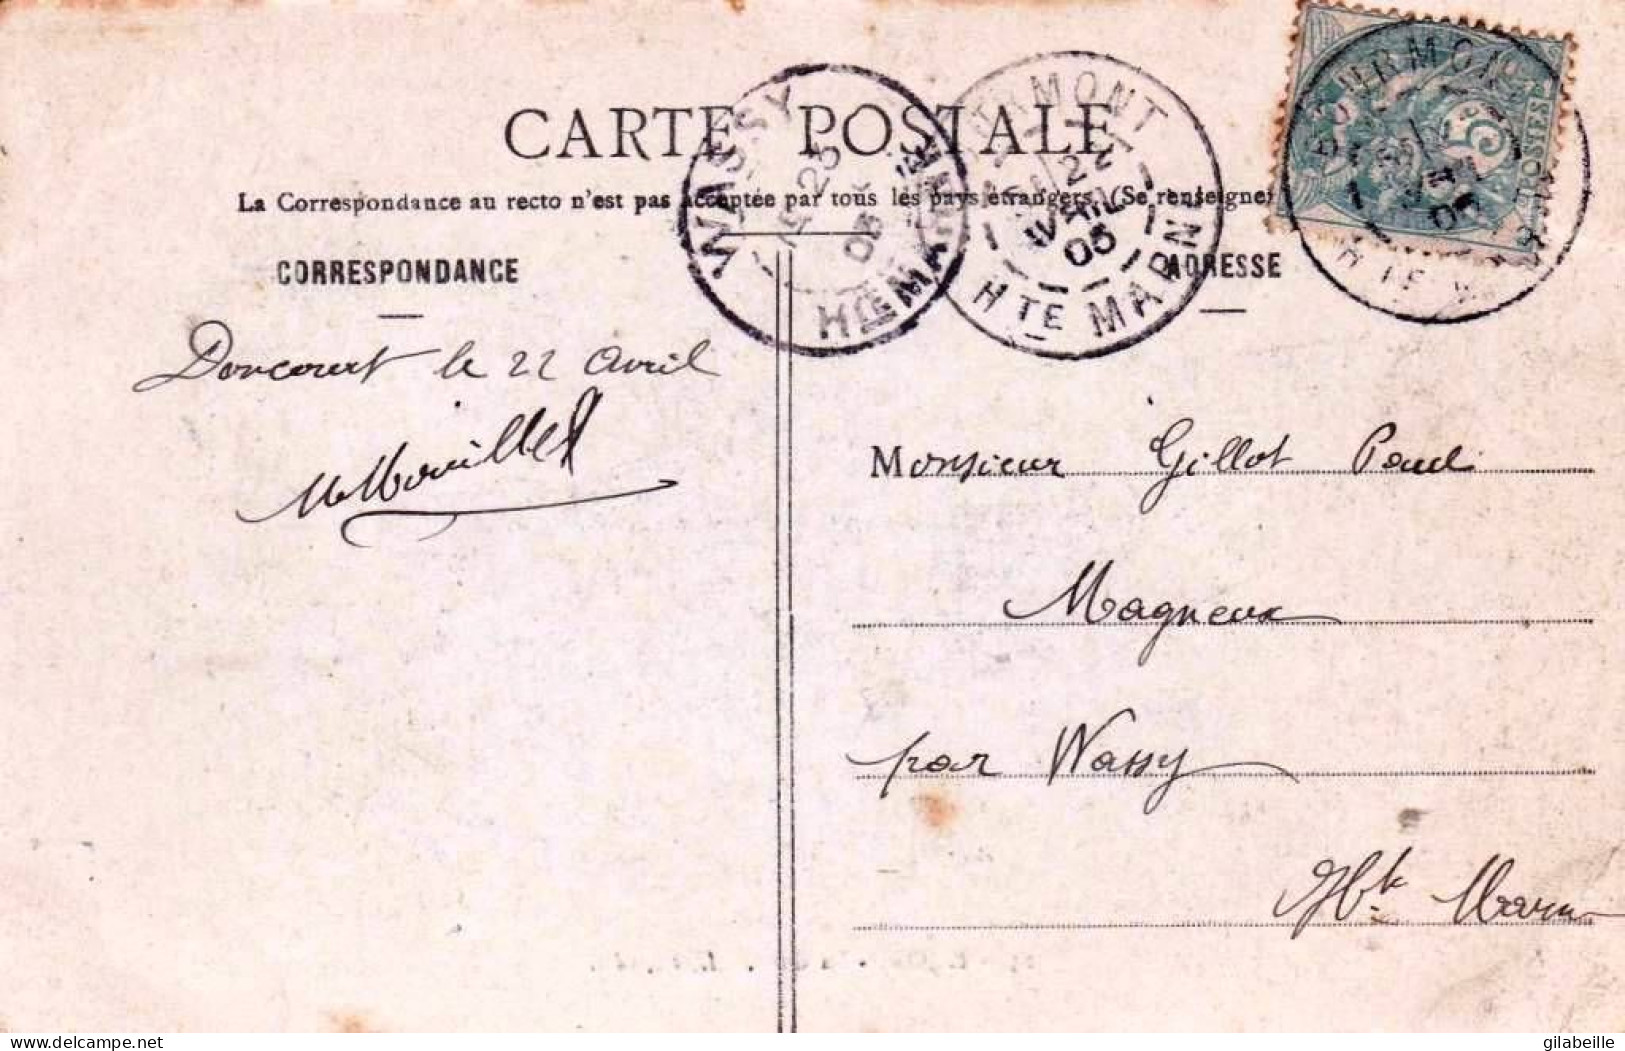 CARTE POSTALE
La Correspondance au recto n'est pas acceptée par tous les pays étrangers. (Se renseigner
CORRESPONDANCE
ADRESSE
WASSY
23
05
HTE MARNE
22
AVRIL
05
HTE MARNE
5
POSTES
05
Doncourt le 22 Avril
Monsieur Gillot Paul
Magneux
par Wassy
Hte Marne
delcampe.net
gilabeille